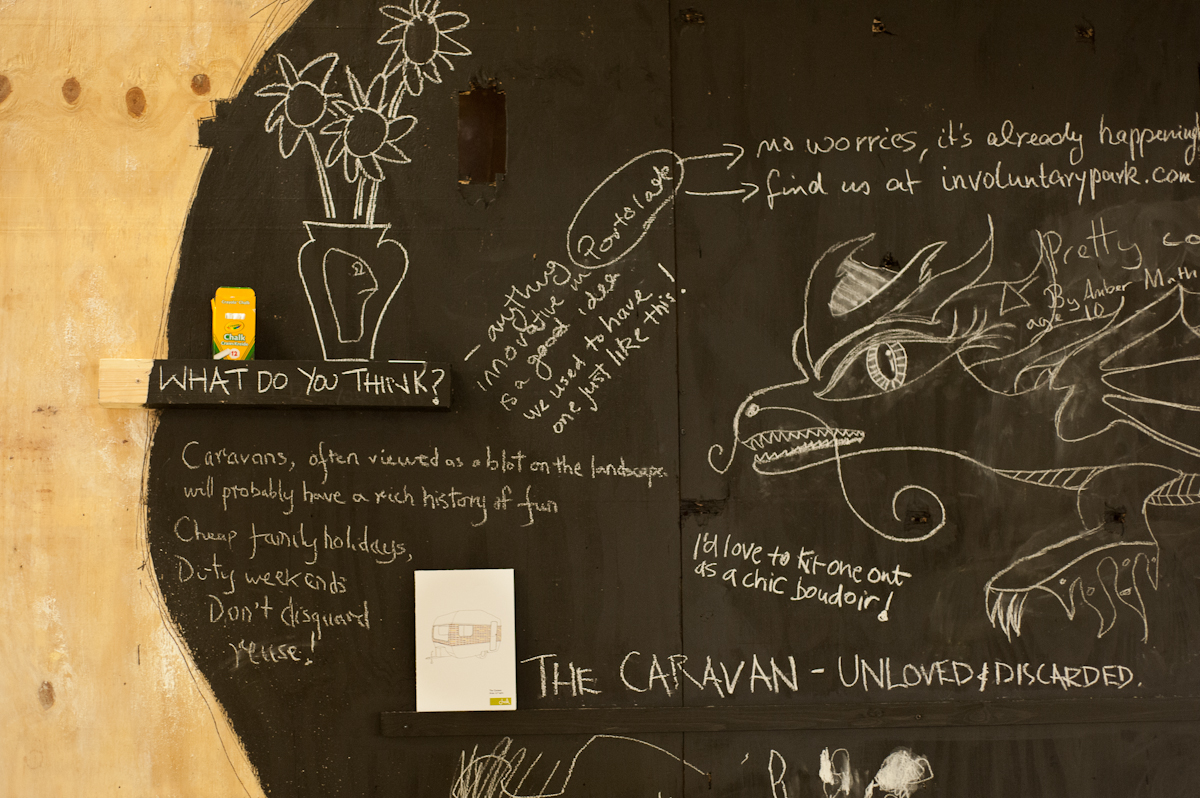 no worries, it's already happening
find us at involuntarypark.com
Portslade
- anything
innovative in
is a good idea
we used to have
one just like this!
Pretty
By Amber Math
age 10
Chalk
12
WHAT DO YOU THINK?
Caravans, often viewed as a blot on the landscape
will probably have a rich history of fun
Cheap family holidays,
Dirty weekends
Don't disguard
reuse!
I'd love to kit one out
as a chic boudoir!
THE CARAVAN - UNLOVED & DISCARDED.